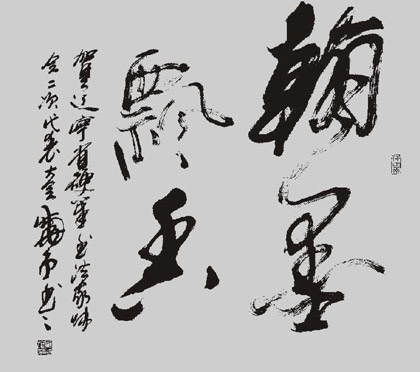 翰墨
飄香
贺辽宁省硬筆书法家协
会二次代表大会